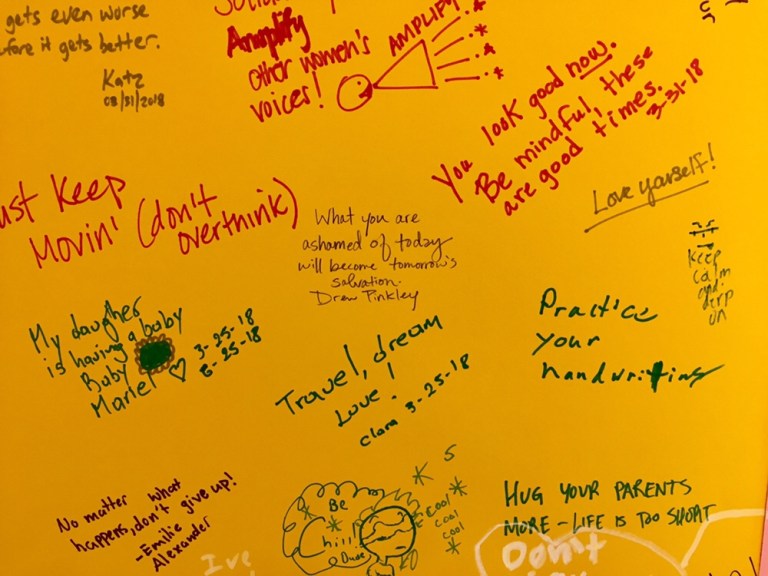 gets even worse
before it gets better.
Katz
03/31/2018
Amplify
other women's
voices!
AMPLIFY
You look good now.
Be mindful, these
are good times.
3-31-18
Love yourself!
Just Keep
Movin' (don't
overthink)
What you are
ashamed of today
will become tomorrow's
salvation.
Drew Pinkley
keep
calm
and
derp
on
My daugher
is having a baby
Baby
Mariel ♡
3-25-18
6-25-18
Travel, dream
Love!
Clara 3-25-18
Practice
your
handwriting
No matter what
happens, don't give up!
-Emilie
Alexander
Be
Chill!
Dude
S
Cool
cool
cool
HUG YOUR PARENTS
MORE - LIFE IS TOO SHORT
I've
Don't